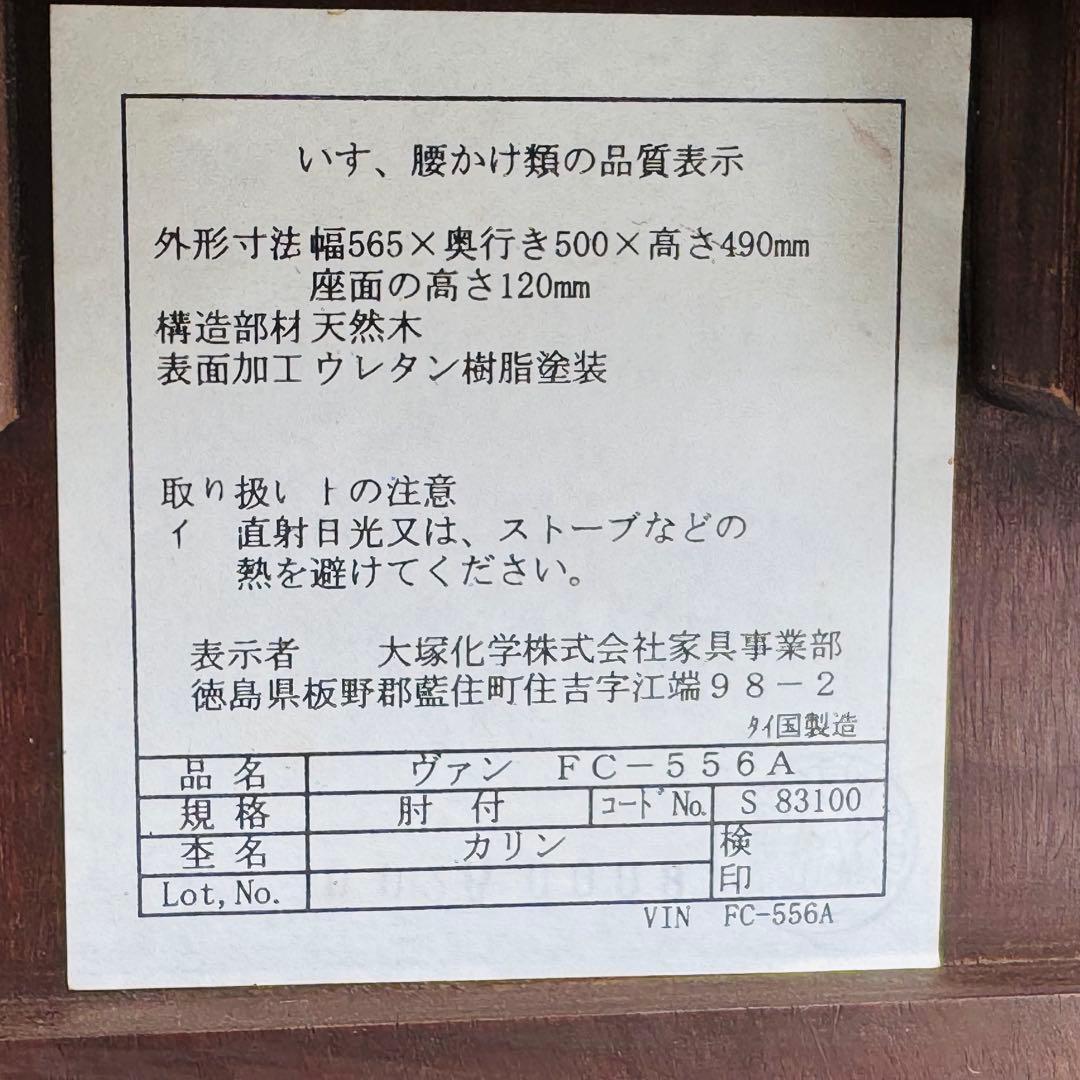 いす、腰かけ類の品質表示
外形寸法 幅565×奥行き500×高さ490mm
座面の高さ120mm
構造部材 天然木
表面加工 ウレタン樹脂塗装
取り扱い上の注意
イ 直射日光又は、ストーブなどの
熱を避けてください。
表示者 大塚化学株式会社家具事業部
徳島県板野郡藍住町住吉字江端98-2
タイ国製造
品名 ヴァン FC-556A
規格 肘付 コードNo. S 83100
杢名 カリン 検印
Lot,No.
VIN FC-556A